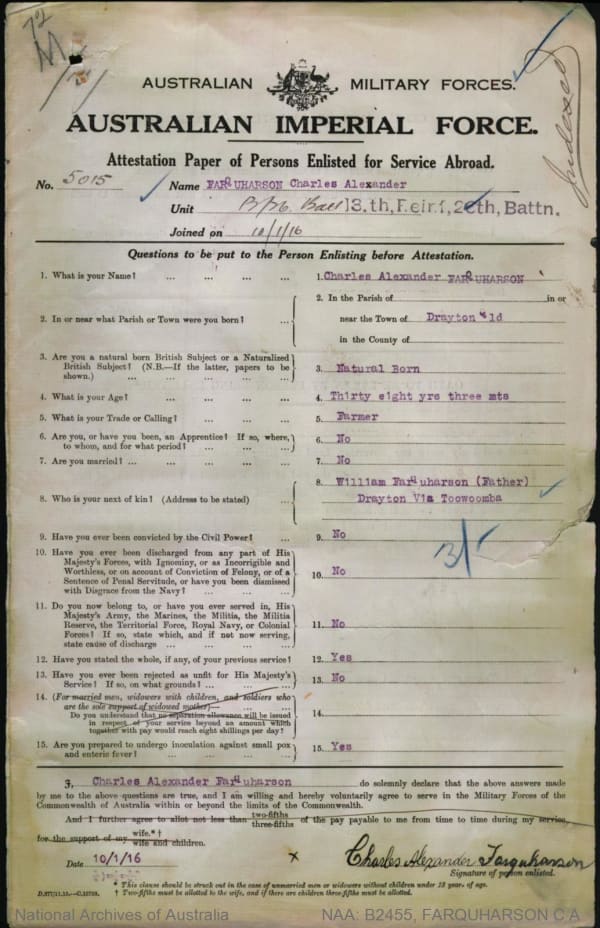 72
M
AUSTRALIAN MILITARY FORCES.
Indexed
AUSTRALIAN IMPERIAL FORCE.
Attestation Paper of Persons Enlisted for Service Abroad.
No. 5015 Name FARQUHARSON Charles Alexander
Unit 13.th, Reinf, 26th, Battn.
Joined on 10/1/16
Questions to be put to the Person Enlisting before Attestation.
1. What is your Name? ... ... ... ... 1. Charles Alexander FARQUHARSON
2. In or near what Parish or Town were you born? ... 2. In the Parish of in or
near the Town of Drayton Qld
in the County of
3. Are you a natural born British Subject or a Naturalized
British Subject? (N.B.—If the latter, papers to be
shown.) ... ... ... ... 3. Natural Born
4. What is your Age? ... ... ... ... 4. Thirty eight yrs three mts
5. What is your Trade or Calling? ... ... ... 5. Farmer
6. Are you, or have you been, an Apprentice? If so, where,
to whom, and for what period? ... ... ... 6. No
7. Are you married? ... ... ... ... ... 7. No
8. Who is your next of kin? (Address to be stated) ... 8. William Farquharson (Father)
Drayton Via Toowoomba
9. Have you ever been convicted by the Civil Power? ... 9. No
10. Have you ever been discharged from any part of His
Majesty's Forces, with Ignominy, or as Incorrigible and
Worthless, or on account of Conviction of Felony, or of a
Sentence of Penal Servitude, or have you been dismissed
with Disgrace from the Navy? ... ... ... 10. No
11. Do you now belong to, or have you ever served in, His
Majesty's Army, the Marines, the Militia, the Militia
Reserve, the Territorial Force, Royal Navy, or Colonial
Forces? If so, state which, and if not now serving,
state cause of discharge ... ... ... ... 11. No
12. Have you stated the whole, if any, of your previous service? 12. Yes
13. Have you ever been rejected as unfit for His Majesty's
Service? If so, on what grounds? ... ... ... 13. No
14. (For married men, widowers with children, and soldiers who
are the sole support of widowed mother)—
Do you understand that no separation allowance will be issued
in respect of your service beyond an amount which
together with pay would reach eight shillings per day? 14.
15. Are you prepared to undergo inoculation against small pox
and enteric fever? ... ... ... ... 15. Yes
I, Charles Alexander Farquharson do solemnly declare that the above answers made
by me to the above questions are true, and I am willing and hereby voluntarily agree to serve in the Military Forces of the
Commonwealth of Australia within or beyond the limits of the Commonwealth.
And I further agree to allot not less than two-fifths three-fifths of the pay payable to me from time to time during my service
for the support of my wife.*† wife and children.
Date 10/1/16 x Charles Alexander Farquharson
Signature of person enlisted.
* This clause should be struck out in the case of unmarried men or widowers without children under 18 years of age.
† Two-fifths must be allotted to the wife, and if there are children three-fifths must be allotted.
National Archives of Australia NAA: B2455, FARQUHARSON C A